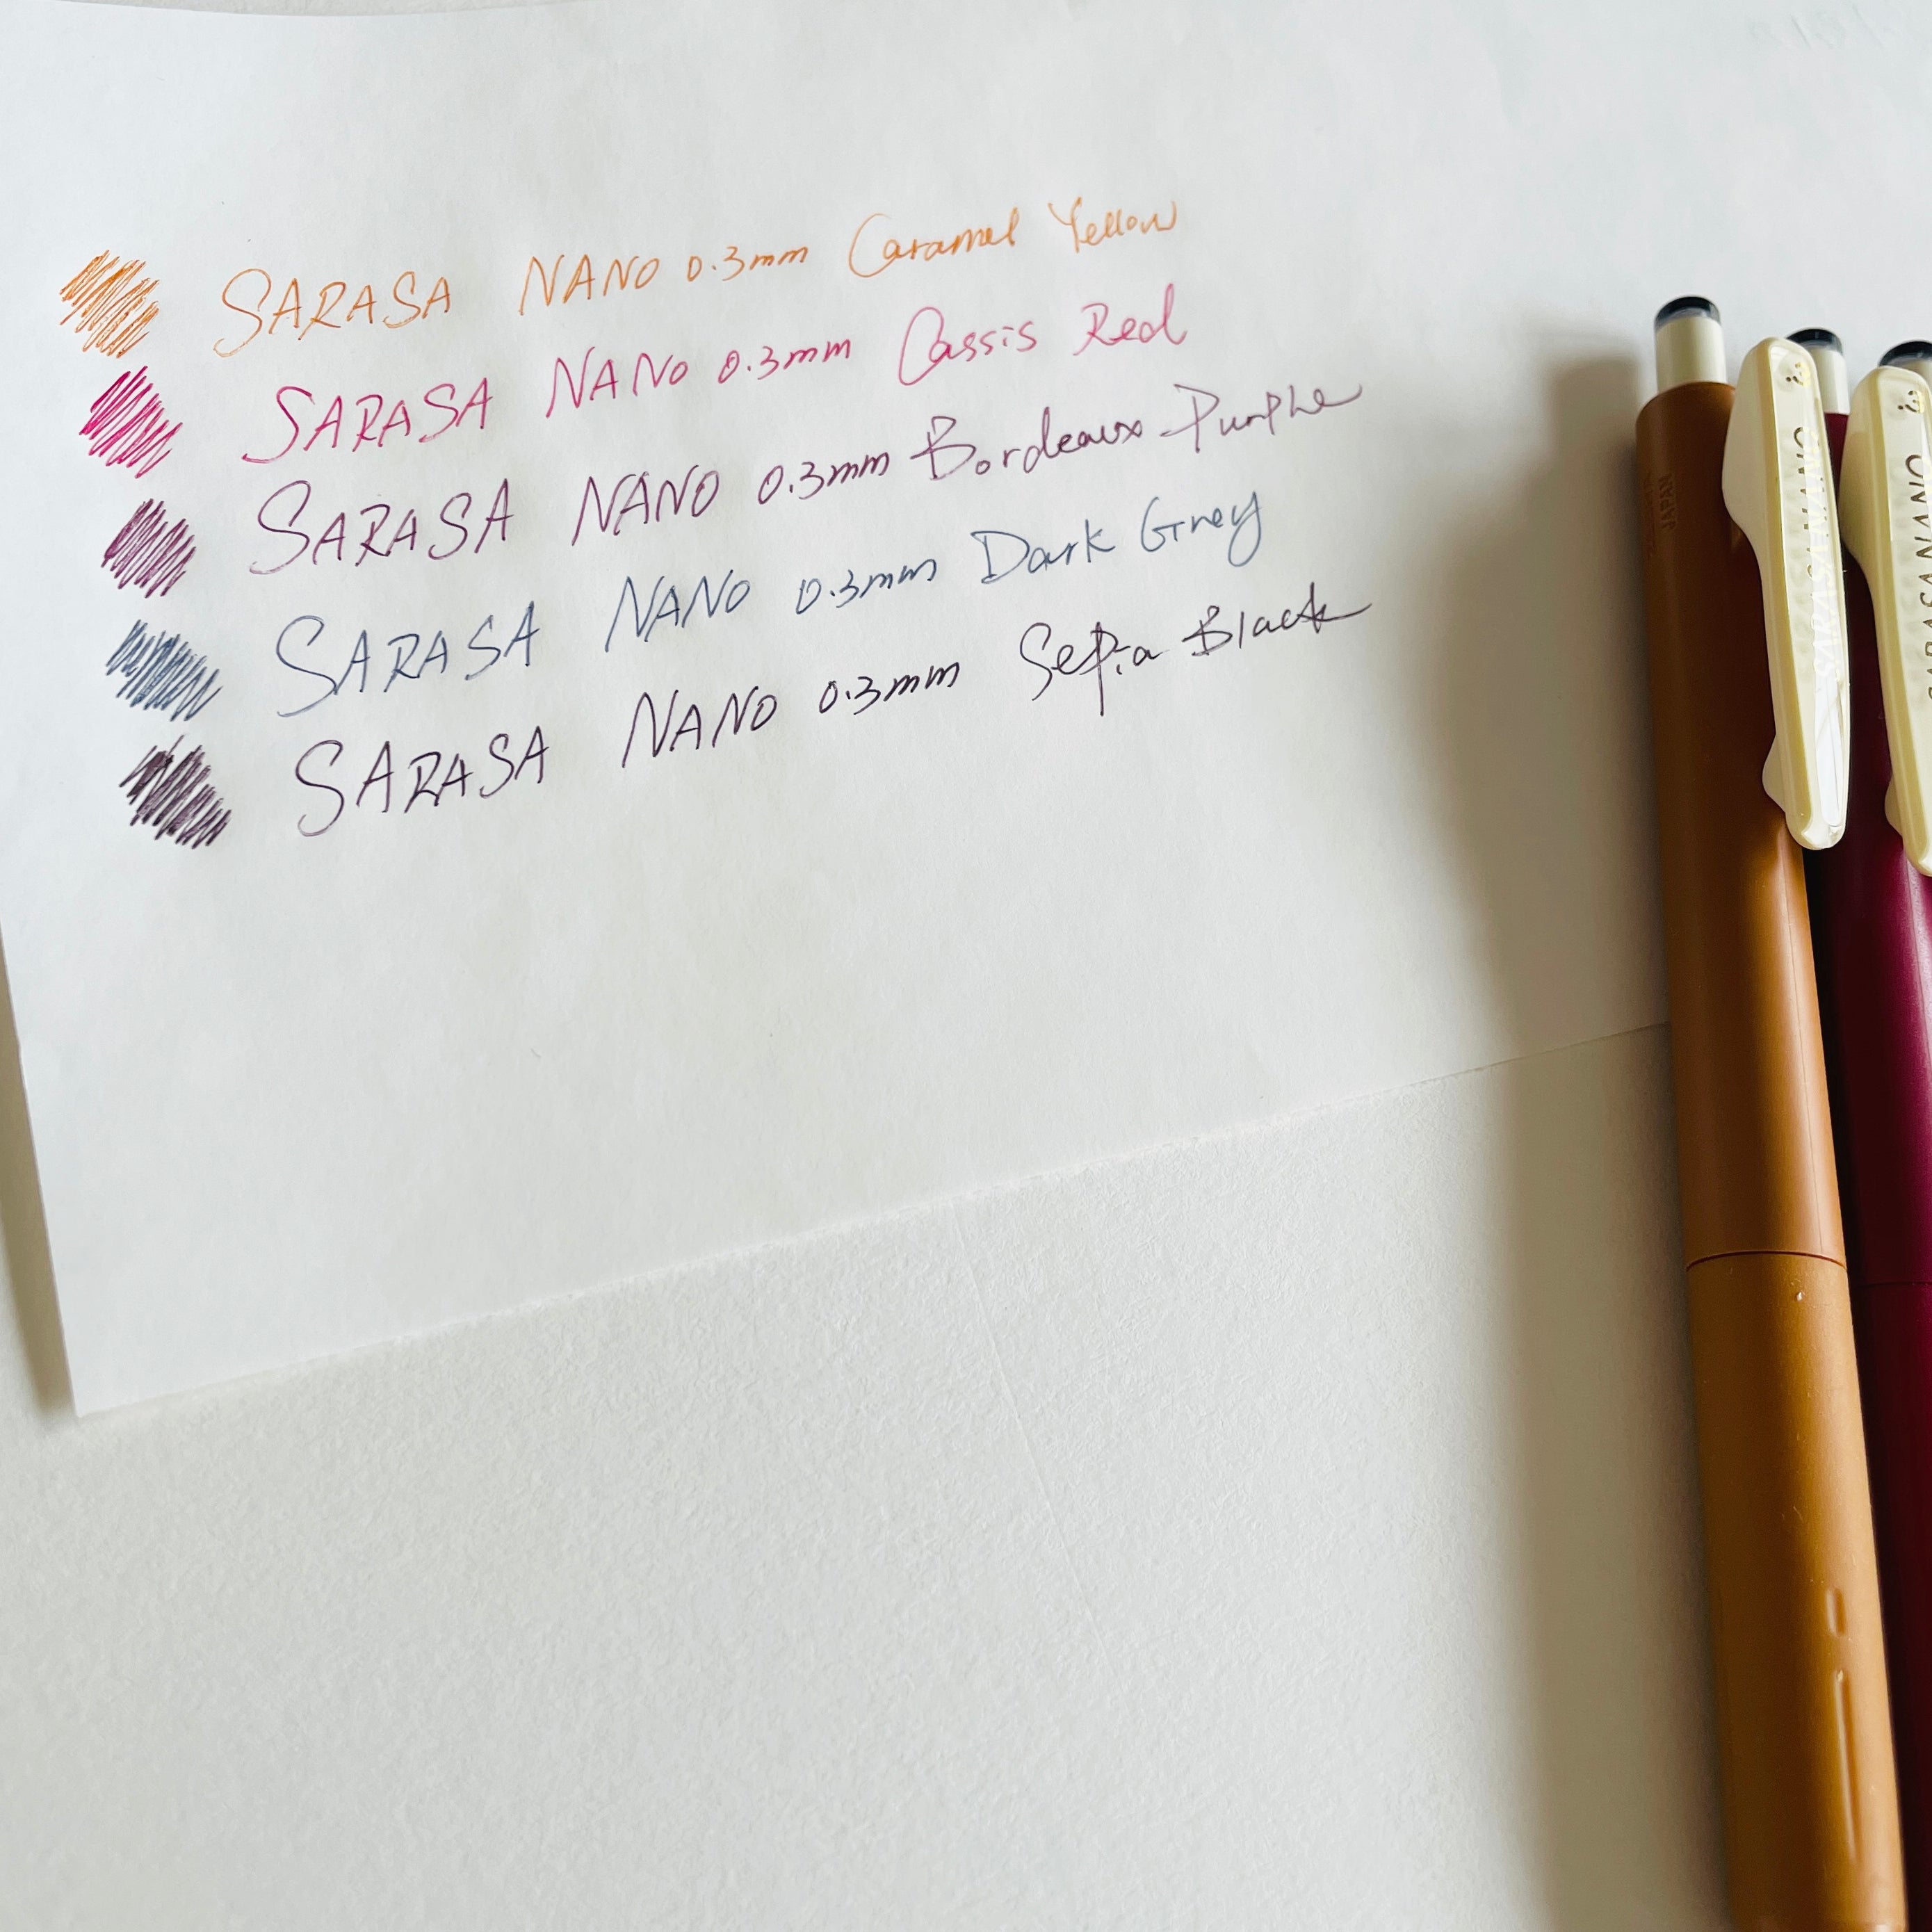 SARASA NANO 0.3mm Caramel Yellow
SARASA NANO 0.3mm Cassis Red
SARASA NANO 0.3mm Bordeaux Purple
SARASA NANO 0.3mm Dark Grey
SARASA NANO 0.3mm Sepia Black
SARASA NANO
SARASA NANO
JAPAN